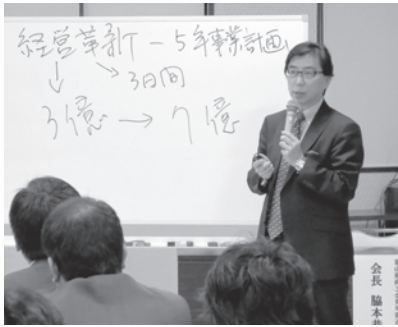 経営革新 - 5年事業計画
↓ ↘ 3日間
3億 → 7億
会長 脇本